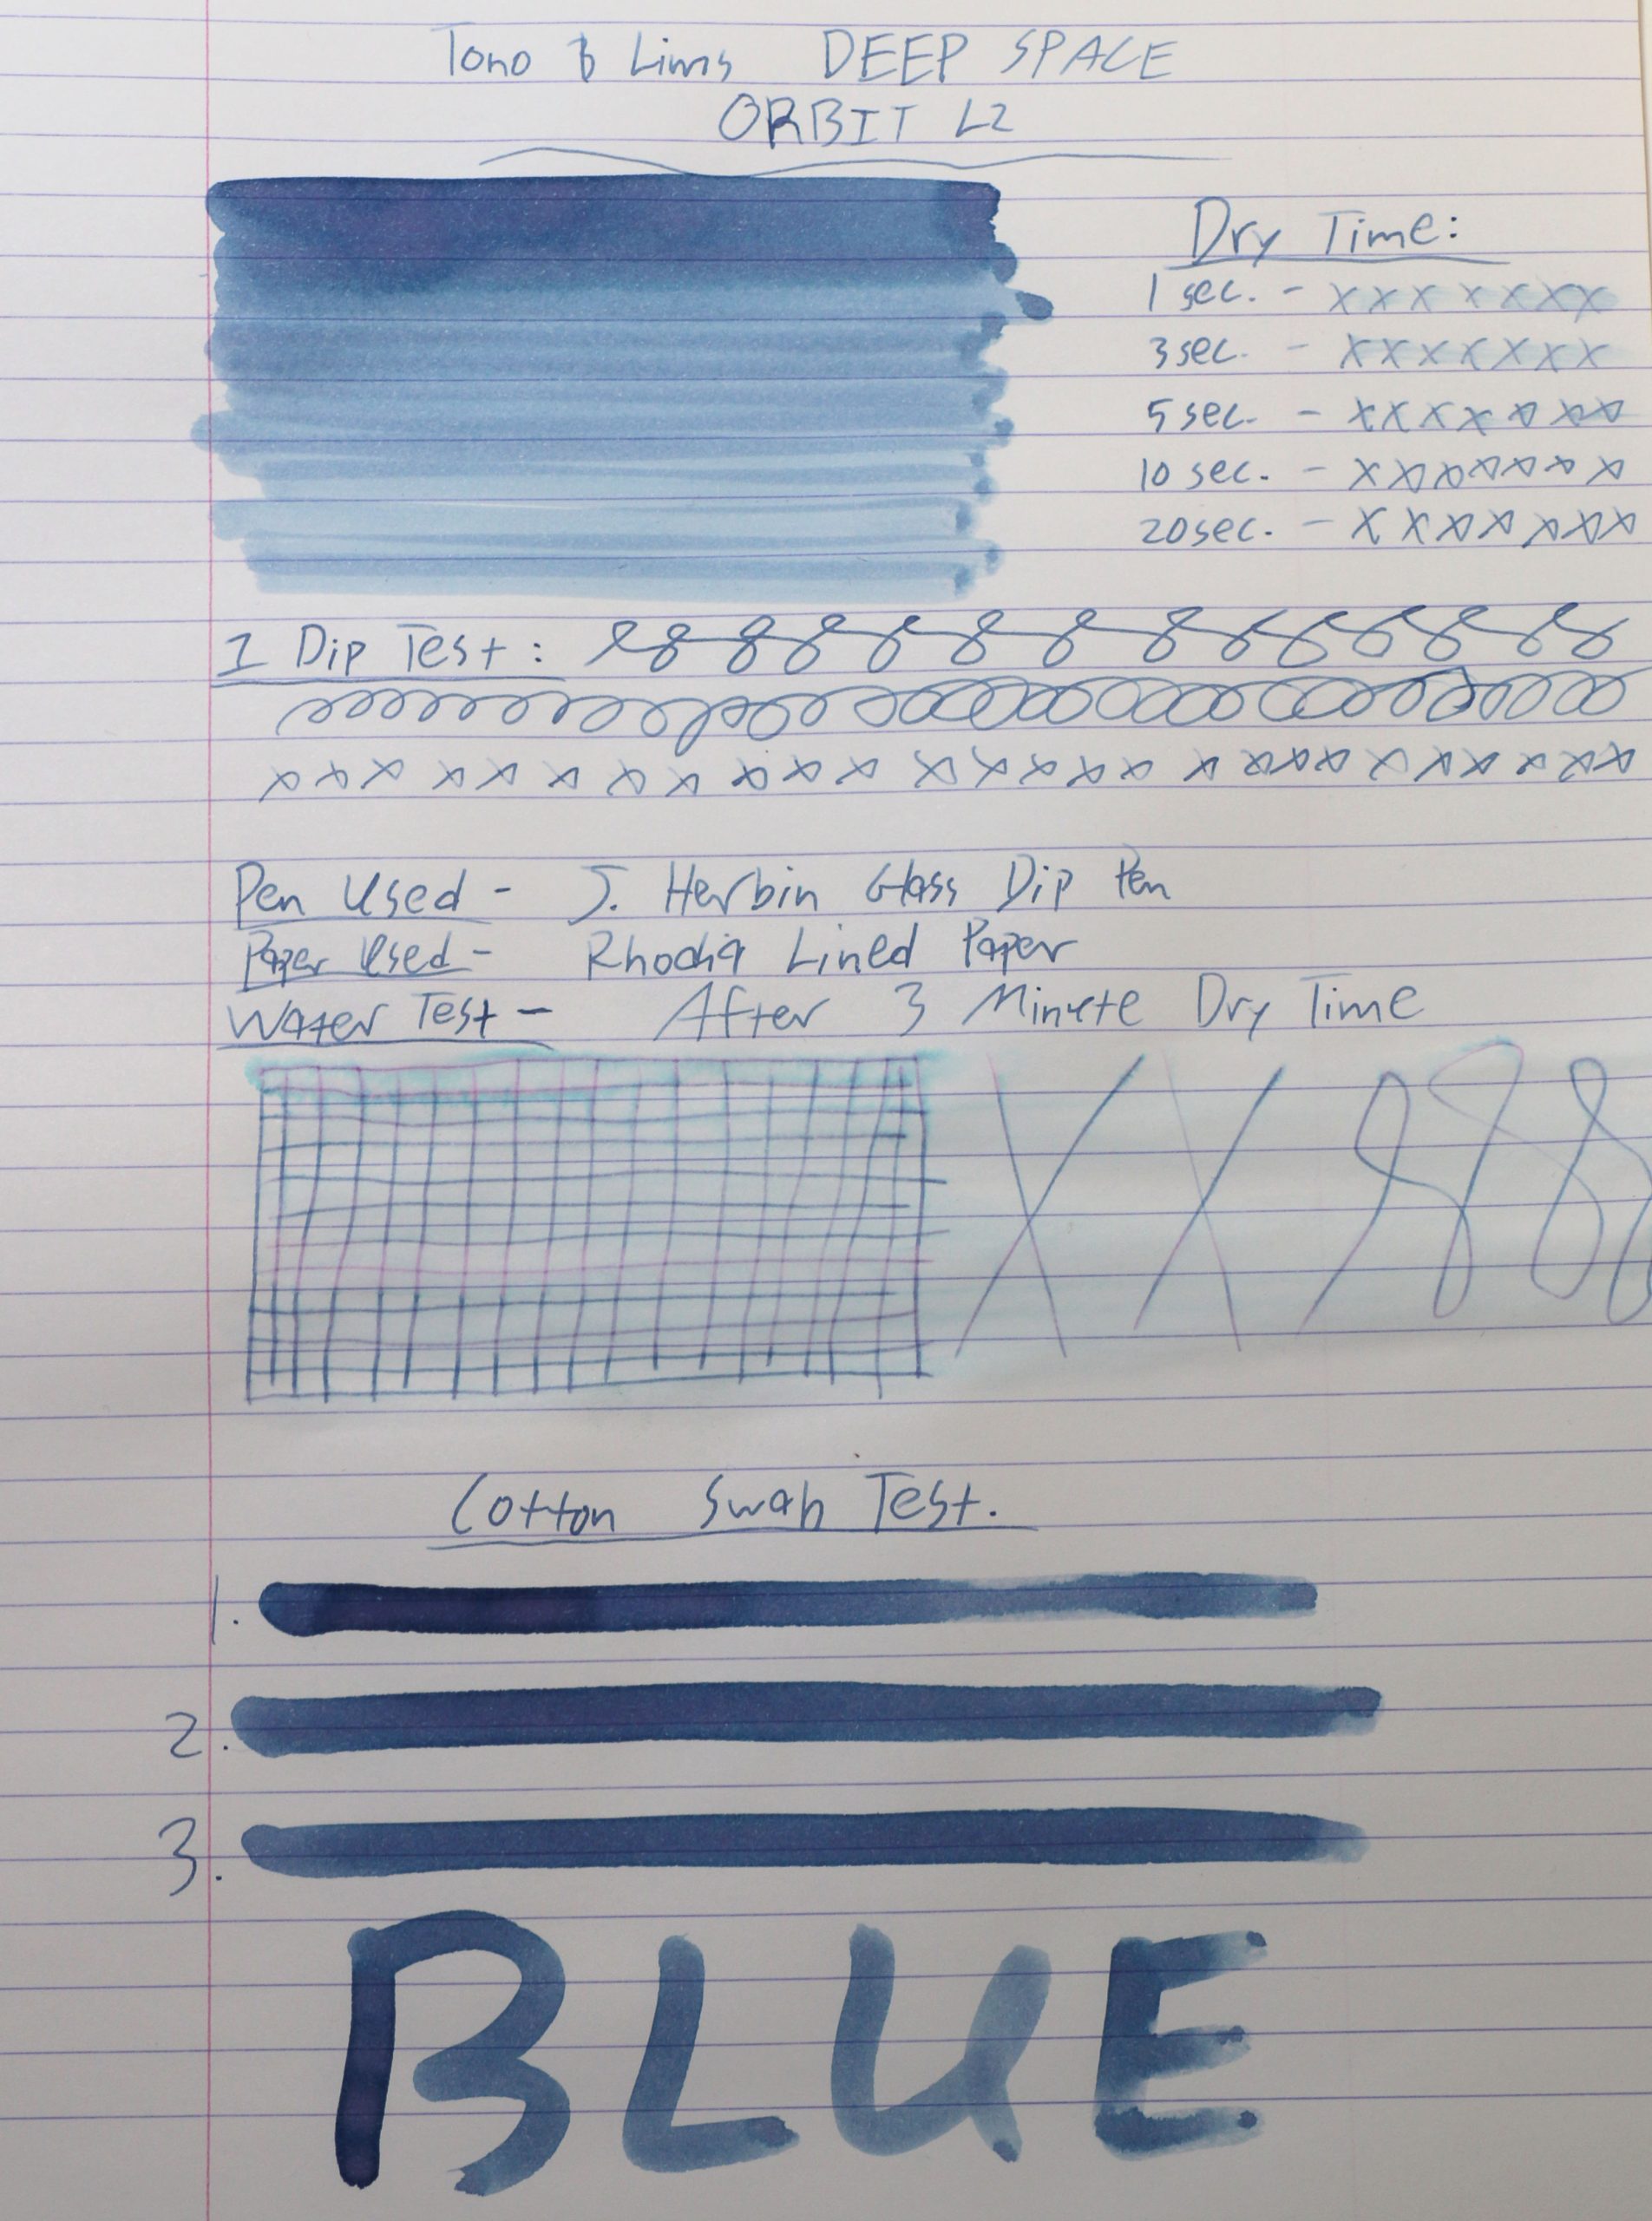 Tono & Lims DEEP SPACE
ORBIT L2
Dry Time:
1 sec. - x x x x x x x
3 sec. - x x x x x x x
5 sec. - x x x x x x x
10 sec. - x x x x x x x
20 sec. - x x x x x x x
1 Dip Test:
Pen Used - J. Herbin Glass Dip Pen
Paper Used - Rhodia Lined Paper
Water Test - After 3 Minute Dry Time
Cotton Swab Test.
1.
2.
3.
BLUE